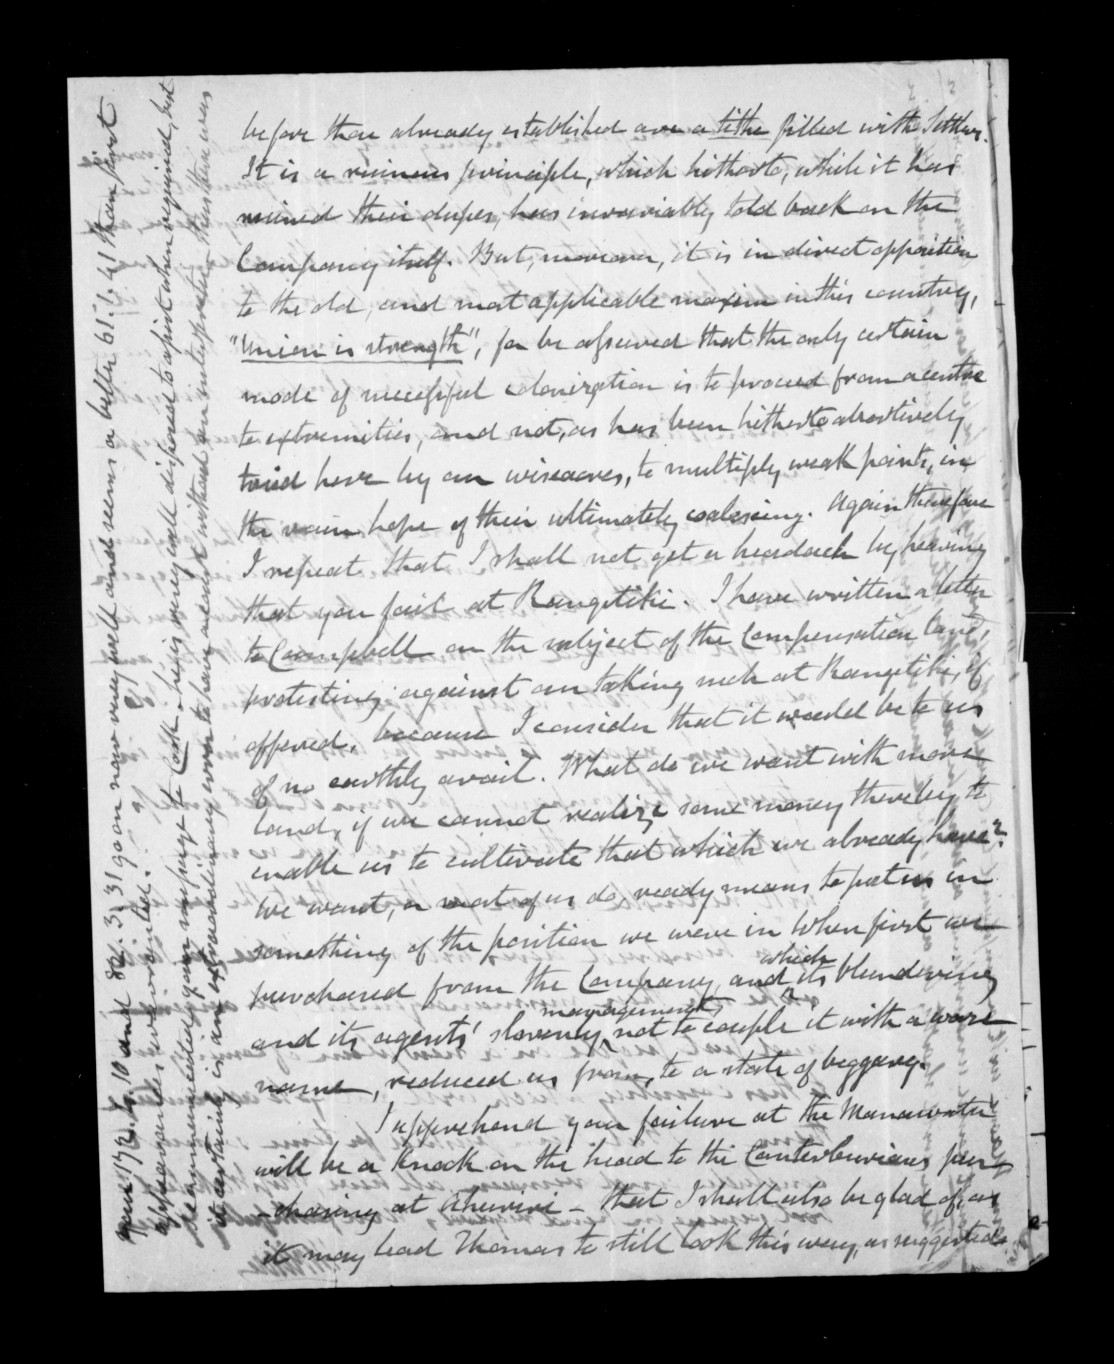 before those already established are a tithe filled with Settlers.
It is a ruinous principle, which hitherto, while it has
ruined their dupes, has invariably told back on the
Company itself. But, moreover, it is in direct opposition
to the old, and most applicable maxim in this country,
"Union is strength", for be assured that the only certain
mode of successful colonization is to proceed from a centre
to extremities, and not, as has been hitherto abortively
tried here by our wiseacres, to multiply weak points, in
the vain hope of their ultimately coalescing. Again therefore
I repeat that I shall not get a headach by hearing
that you fail at Rangitiki. I have written a letter
to Campbell on the subject of the Compensation land,
protesting against our taking such at Rangitiki, if
offered, because I consider that it would be to us
of no earthly avail. What do we want with more
land, if we cannot realize some money thereby to
enable us to cultivate that which we already have?
We want, or most of us do, ready means to put us in
something of the position we were in when first we
purchased from the Company, and which its blundering
and its agents' slovenly managements, not to couple it with a worse
name, reduced us from, to a state of beggary.
I apprehend your failure at the Manawatu
will be a knock on the head to the Canterburians pur
-chasing at Ahuriri - that I shall also be glad of, as
it may lead Thomas to still look this way, as suggested.
your 172. 6. 10 and 82. 3. 31 go on now very well and seem a better 61. 1. 41 than first
appearances warranted.
He communicated your message to Cork, he is very well disposed to assist when required, but
it certainly is an extraordinary over to have an agent without an interpreter, thus there was